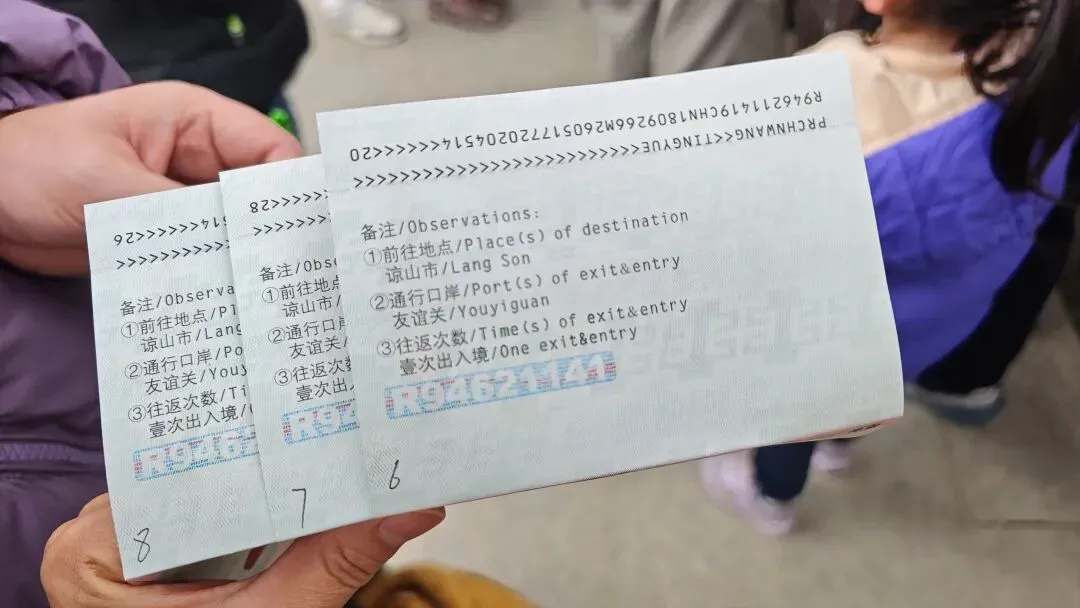 PRCHNWANG<<TINGYUE<<<<<<<<<<<<<<<<<<<<<<<<<<
R946211419CHN1809266M260517720204514<<<<<<20
备注/Observations:
①前往地点/Place(s) of destination
谅山市/Lang Son
②通行口岸/Port(s) of exit&entry
友谊关/Youyiguan
③往返次数/Time(s) of exit&entry
壹次出入境/One exit&entry
R94621141
6
<<<<<28
备注/Obse
①前往地点/
谅山市/
②通行口岸
友谊关/
③往返次数
壹次出入境/
R94
7
514<<<<<<26
备注/Observa
①前往地点/Pl
谅山市/Lang
②通行口岸/Po
友谊关/Youy
③往返次数/Ti
壹次出入境/
R9462
8